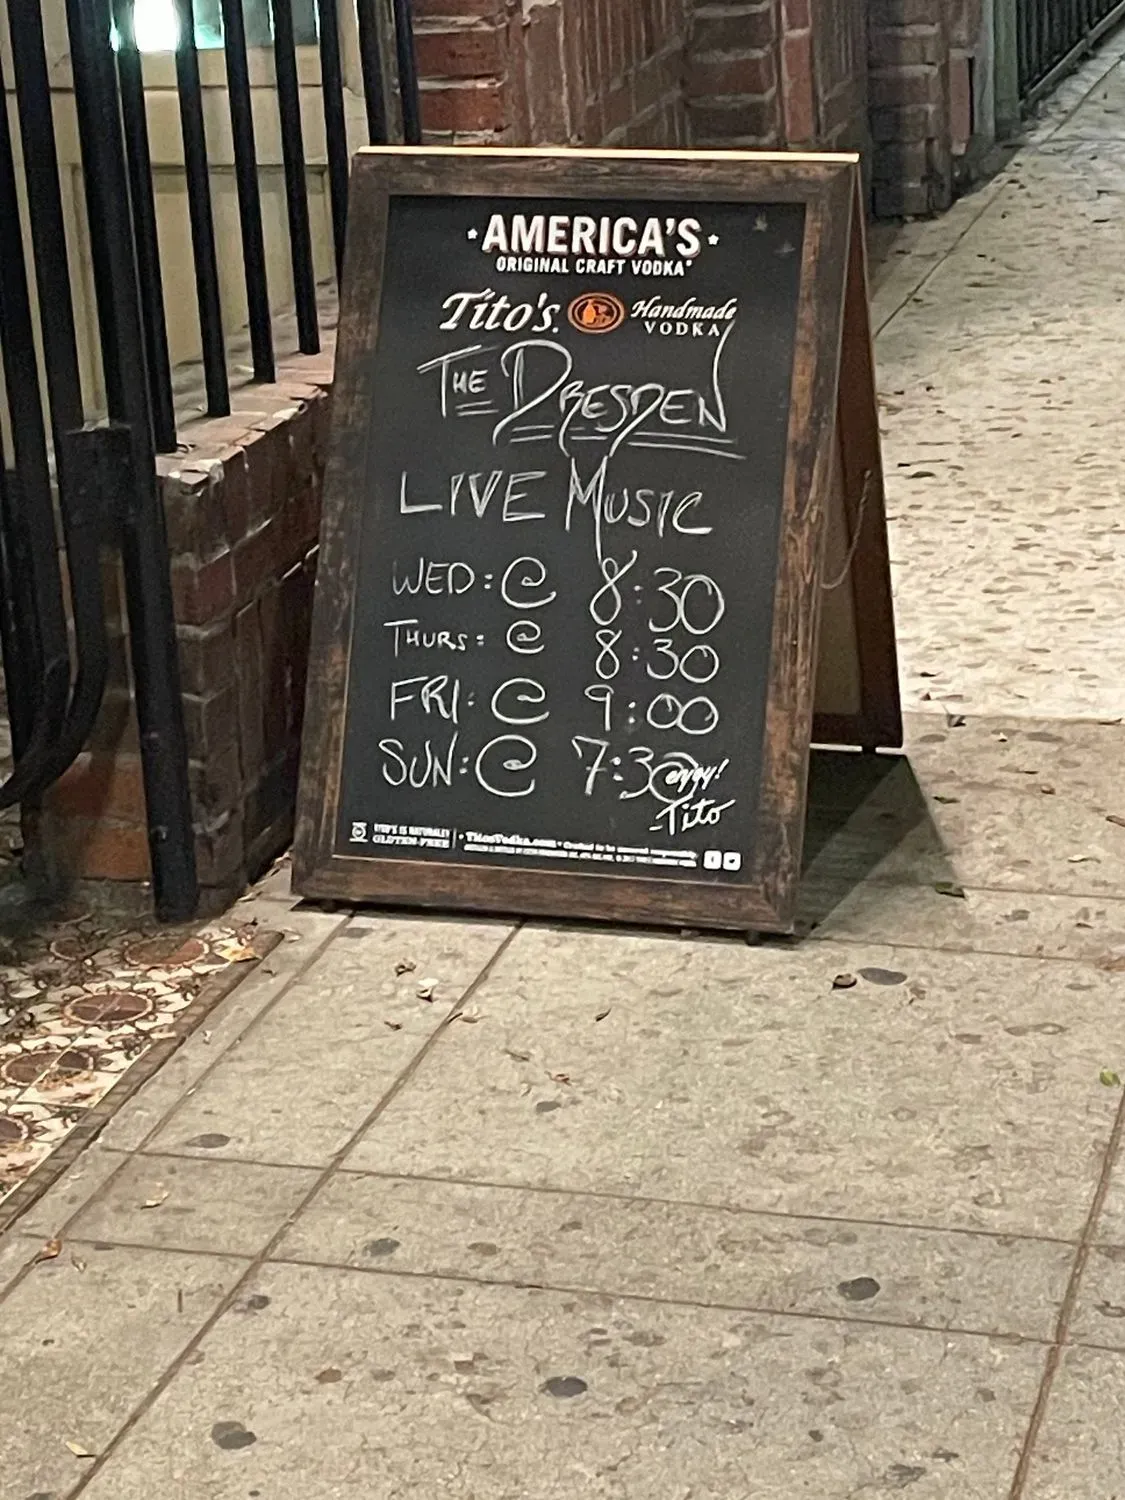 AMERICA'S
ORIGINAL CRAFT VODKA®
Tito's. Handmade
VODKA
THE DRESDEN
LIVE MUSIC
WED: @ 8:30
THURS: @ 8:30
FRI: @ 9:00
SUN: @ 7:30
enjoy!
-Tito
TITO'S IS NATURALLY
GLUTEN-FREE
TitosVodka.com • Crafted to be savored responsibly